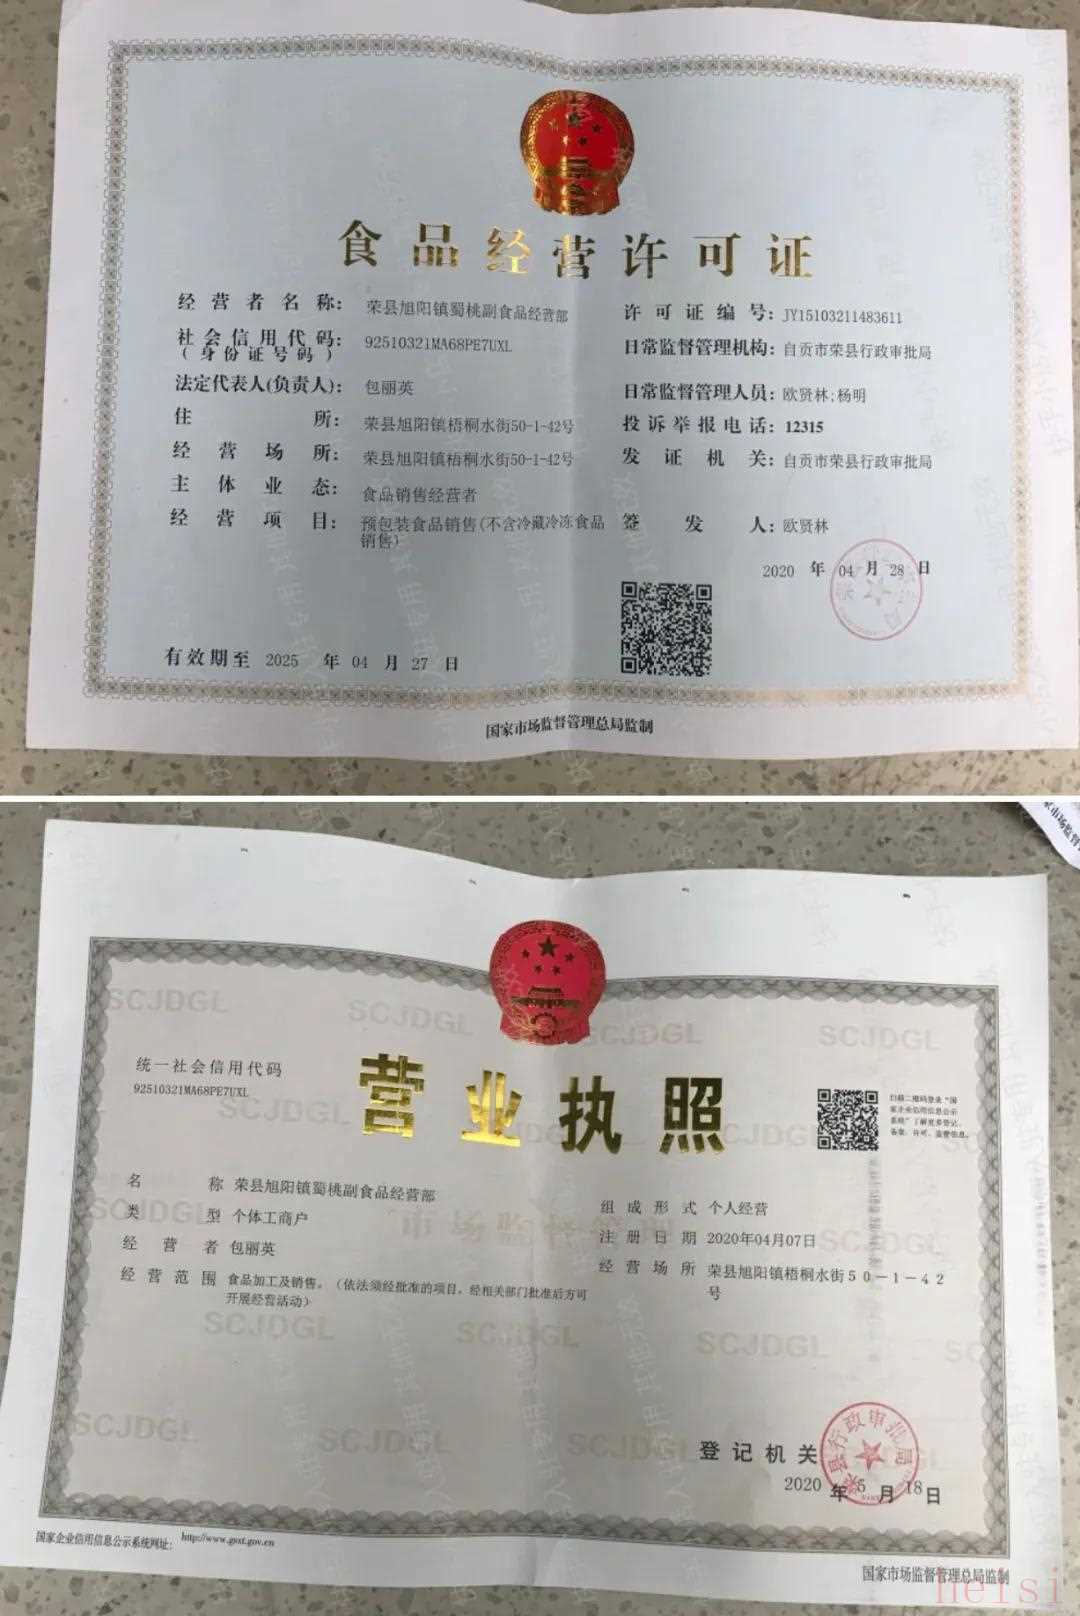 食品经营许可证
经营者名称： 荣县旭阳镇蜀桃副食品经营部
社会信用代码： 92510321MA68PE7UXL
(身份证号码)
法定代表人(负责人)： 包丽英
住所： 荣县旭阳镇梧桐水街50-1-42号
经营场所： 荣县旭阳镇梧桐水街50-1-42号
主体业态： 食品销售经营者
经营项目： 预包装食品销售(不含冷藏冷冻食品
销售)
许可证编号： JY15103211483611
日常监督管理机构： 自贡市荣县行政审批局
日常监督管理人员： 欧贤林;杨明
投诉举报电话： 12315
发证机关： 自贡市荣县行政审批局
签发人： 欧贤林
2020 年 04 月 28 日
有效期至 2025 年 04 月 27 日
国家市场监督管理总局监制
统一社会信用代码
92510321MA68PE7UXL
营业执照
扫描二维码登录“国
家企业信用信息公示
系统”了解更多登记、
备案、许可、监管信息。
名称 荣县旭阳镇蜀桃副食品经营部
类型 个体工商户
经营者 包丽英
经营范围 食品加工及销售。（依法须经批准的项目，经相关部门批准后方可
开展经营活动）
组成形式 个人经营
注册日期 2020年04月07日
经营场所 荣县旭阳镇梧桐水街50-1-42
号
市场监督管理
SCJDGL
登记机关
荣县行政审批局
2020 年 5 月 18 日
国家企业信用信息公示系统网址： http://www.gsxt.gov.cn
国家市场监督管理总局监制
heisi